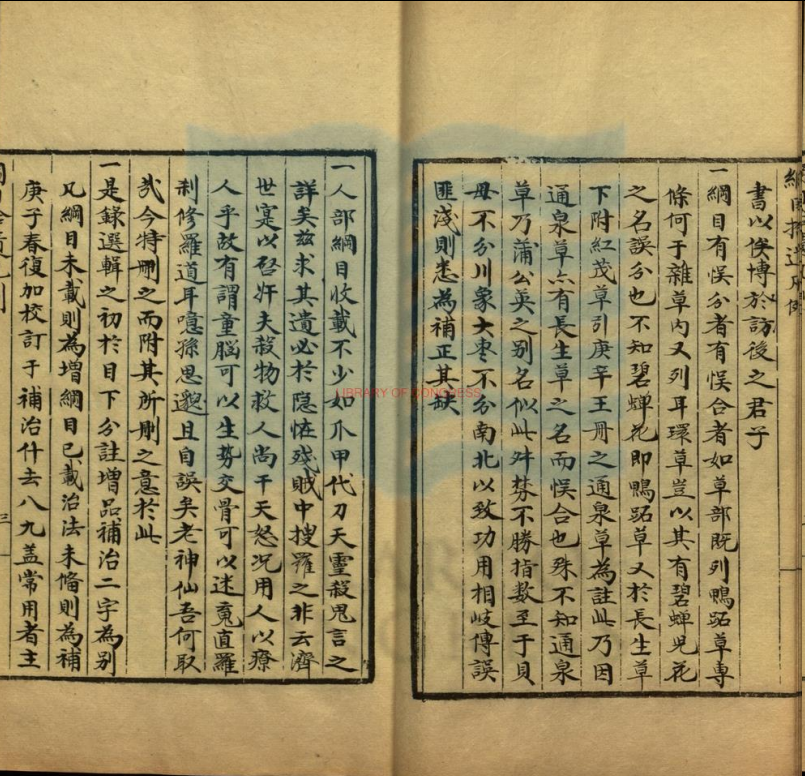 書以俟博於訪後之君子
一綱目有悮分者有悮合者如草部既列鴨跖草專
條何于雜草內又列耳環草豈以其有碧蟬兒花
之名誤分也不知碧蟬花即鴨跖草又於長生草
下附紅茂草引庚辛王冊之通泉草為註此乃因
通泉草亦有長生草之名而悮合也殊不知通泉
草乃蒲公英之别名似此舛棼不勝指数至于貝
母不分川象大枣不分南北以致功用相岐傳誤
匪淺則悉為補正其缺
一人部綱目收載不少如爪甲代刀天靈殺鬼言之
詳矣兹求其遺必於隐怪残賊中搜羅之非云濟
世寔以啓奸夫殺物救人尚干天怒况用人以療
人乎故有謂童腦可以生势交骨可以迷魂直羅
刹修羅道耳噫孫思邈且自誤矣老神仙吾何取
㢤今特刪之而附其所刪之意於此
一是錄選輯之初於目下分註增品補治二字為别
凡綱目未載則為增綱目已載治法未俻則為補
庚子春復加校訂于補治什去八九盖常用者主
LIBRARY OF CONGRESS